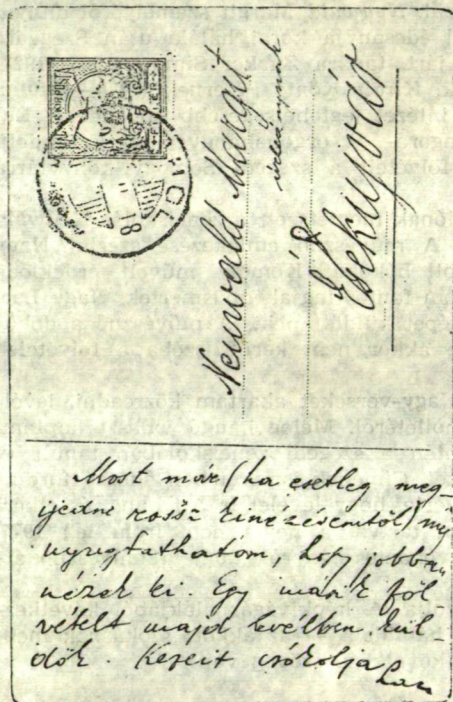 MAGYAR KIR. POSTA
5 FILLÉR
HOL
8
Neuwald Margit
úrleánynak
Érsekújvár
Most már (ha esetleg meg-
ijedne rossz kinézésemtől) meg
nyugtathatom, hogy jobban
nézek ki. Egy másik föl
vételt majd levélben kül-
dök. Kezeit csókolja